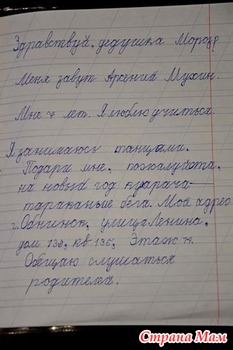 Здравствуй, дедушка Мороз
Меня завут Арсений Мухин.
Мне 7 лет. Я люблю учиться.
Я занимаюсь танцами.
Подари мне, пожалуйста,
на новый год
тараканьи бега. Мой адрес
г. Обнинск, улица Ленина,
дом 130, кв 136, Этаж 4.
Обещаю слушаться
родителей.
Страна Мам